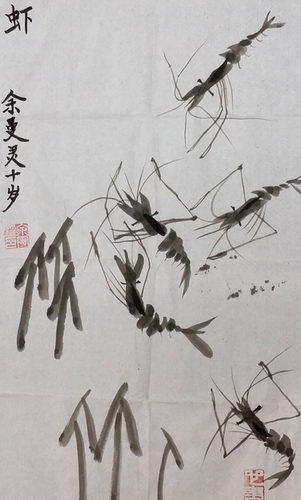 虾
余曼灵十岁